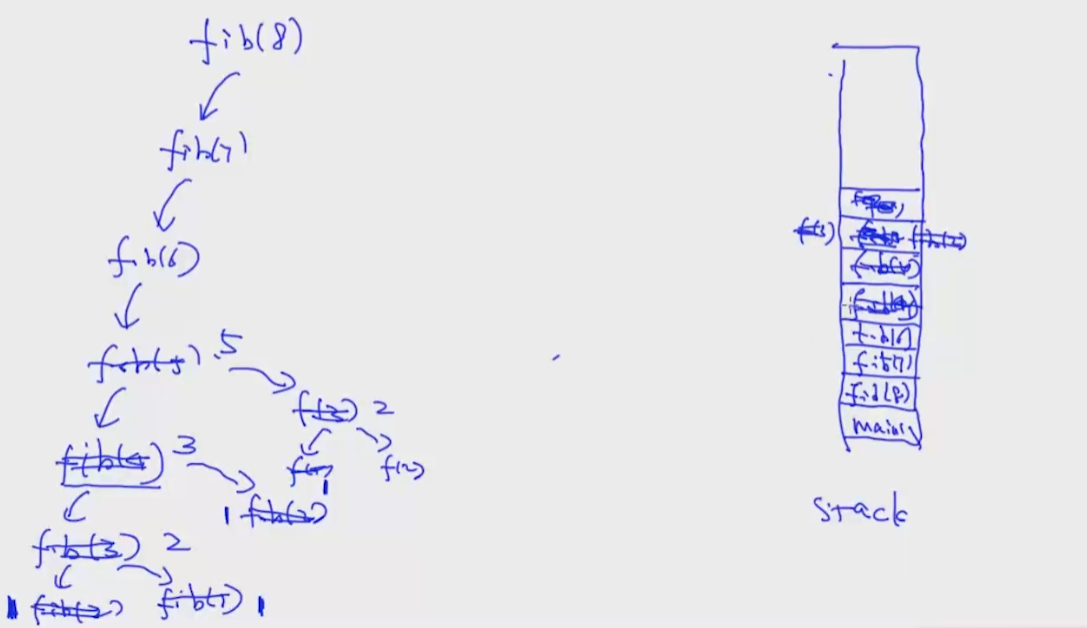 fib(8)
fib(7)
fib(6)
fib(5) 5
f(3) 2
f(1) 1
f(2)
fib(4) 3
1 fib(2)
fib(3) 2
1 fib(2)
fib(1) 1
f(3)
fib(2)
fib(4)
fib(5)
fib(6)
fib(7)
fib(8)
main()
stack